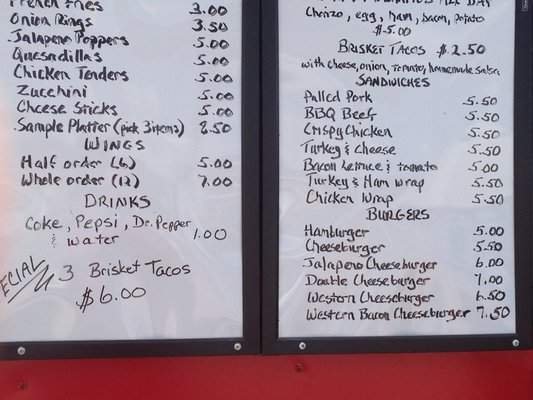 French Fries 3.00
Onion Rings 3.50
Jalapeno Poppers 5.00
Quesadillas 5.00
Chicken Tenders 5.00
Zucchini 5.00
Cheese Sticks 5.00
Sample Platter (pick 3 items) 8.50
WINGS
Half order (6) 5.00
Whole order (12) 7.00
DRINKS
Coke, Pepsi, Dr. Pepper
& water 1.00
3 Brisket Tacos
$6.00
ALL DAY
Chorizo, egg, ham, bacon, potato
$5.00
BRISKET TACOS $2.50
with cheese, onion, tomato, homemade salsa
SANDWICHES
Pulled Pork 5.50
BBQ Beef 5.50
Crispy Chicken 5.50
Turkey & Cheese 5.50
Bacon Lettuce & tomato 5.00
Turkey & Ham wrap 5.50
Chicken Wrap 5.50
BURGERS
Hamburger 5.00
Cheeseburger 5.50
Jalapeno Cheeseburger 6.00
Double Cheeseburger 7.00
Western Cheeseburger 6.50
Western Bacon Cheeseburger 7.50